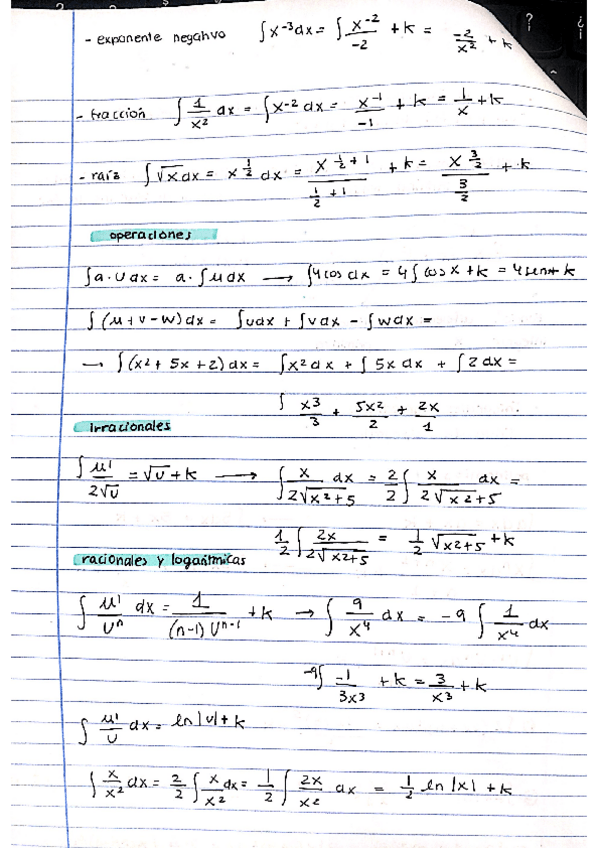 - exponente negativo ∫x⁻³dx = ∫ x⁻²/-2 + k = -2/x² + k
- fracción ∫ 1/x² dx = ∫x⁻² dx = x⁻¹/-1 + k = 1/x + k
- raíz ∫√x dx = x^(1/2) dx = x^(1/2 + 1)/(1/2 + 1) + k = x^(3/2)/(3/2) + k
operaciones
∫a·u dx = a·∫u dx → ∫4cos dx = 4∫cosx + k = 4sen + k
∫(u+v-w)dx = ∫udx + ∫vdx - ∫wdx =
→ ∫(x²+ 5x + 2)dx = ∫x²dx + ∫5x dx + ∫2 dx =
∫ x³/3 + 5x²/2 + 2x/1
irracionales
∫ u'/2√u = √u + k → ∫ x/2√x²+5 dx = 2/2 ∫ x/2√x²+5 dx =
1/2 ∫ 2x/2√x²+5 = 1/2 √x²+5 + k
racionales y logarítmicas
∫ u'/uⁿ dx = 1/(n-1)uⁿ⁻¹ + k → ∫ 9/x⁴ dx = -9 ∫ 1/x⁴ dx
-9∫ -1/3x³ + k = 3/x³ + k
∫ u'/u dx = ln|u| + k
∫ x/x² dx = 2/2 ∫ x/x² dx = 1/2 ∫ 2x/x² dx = 1/2 ln|x| + k